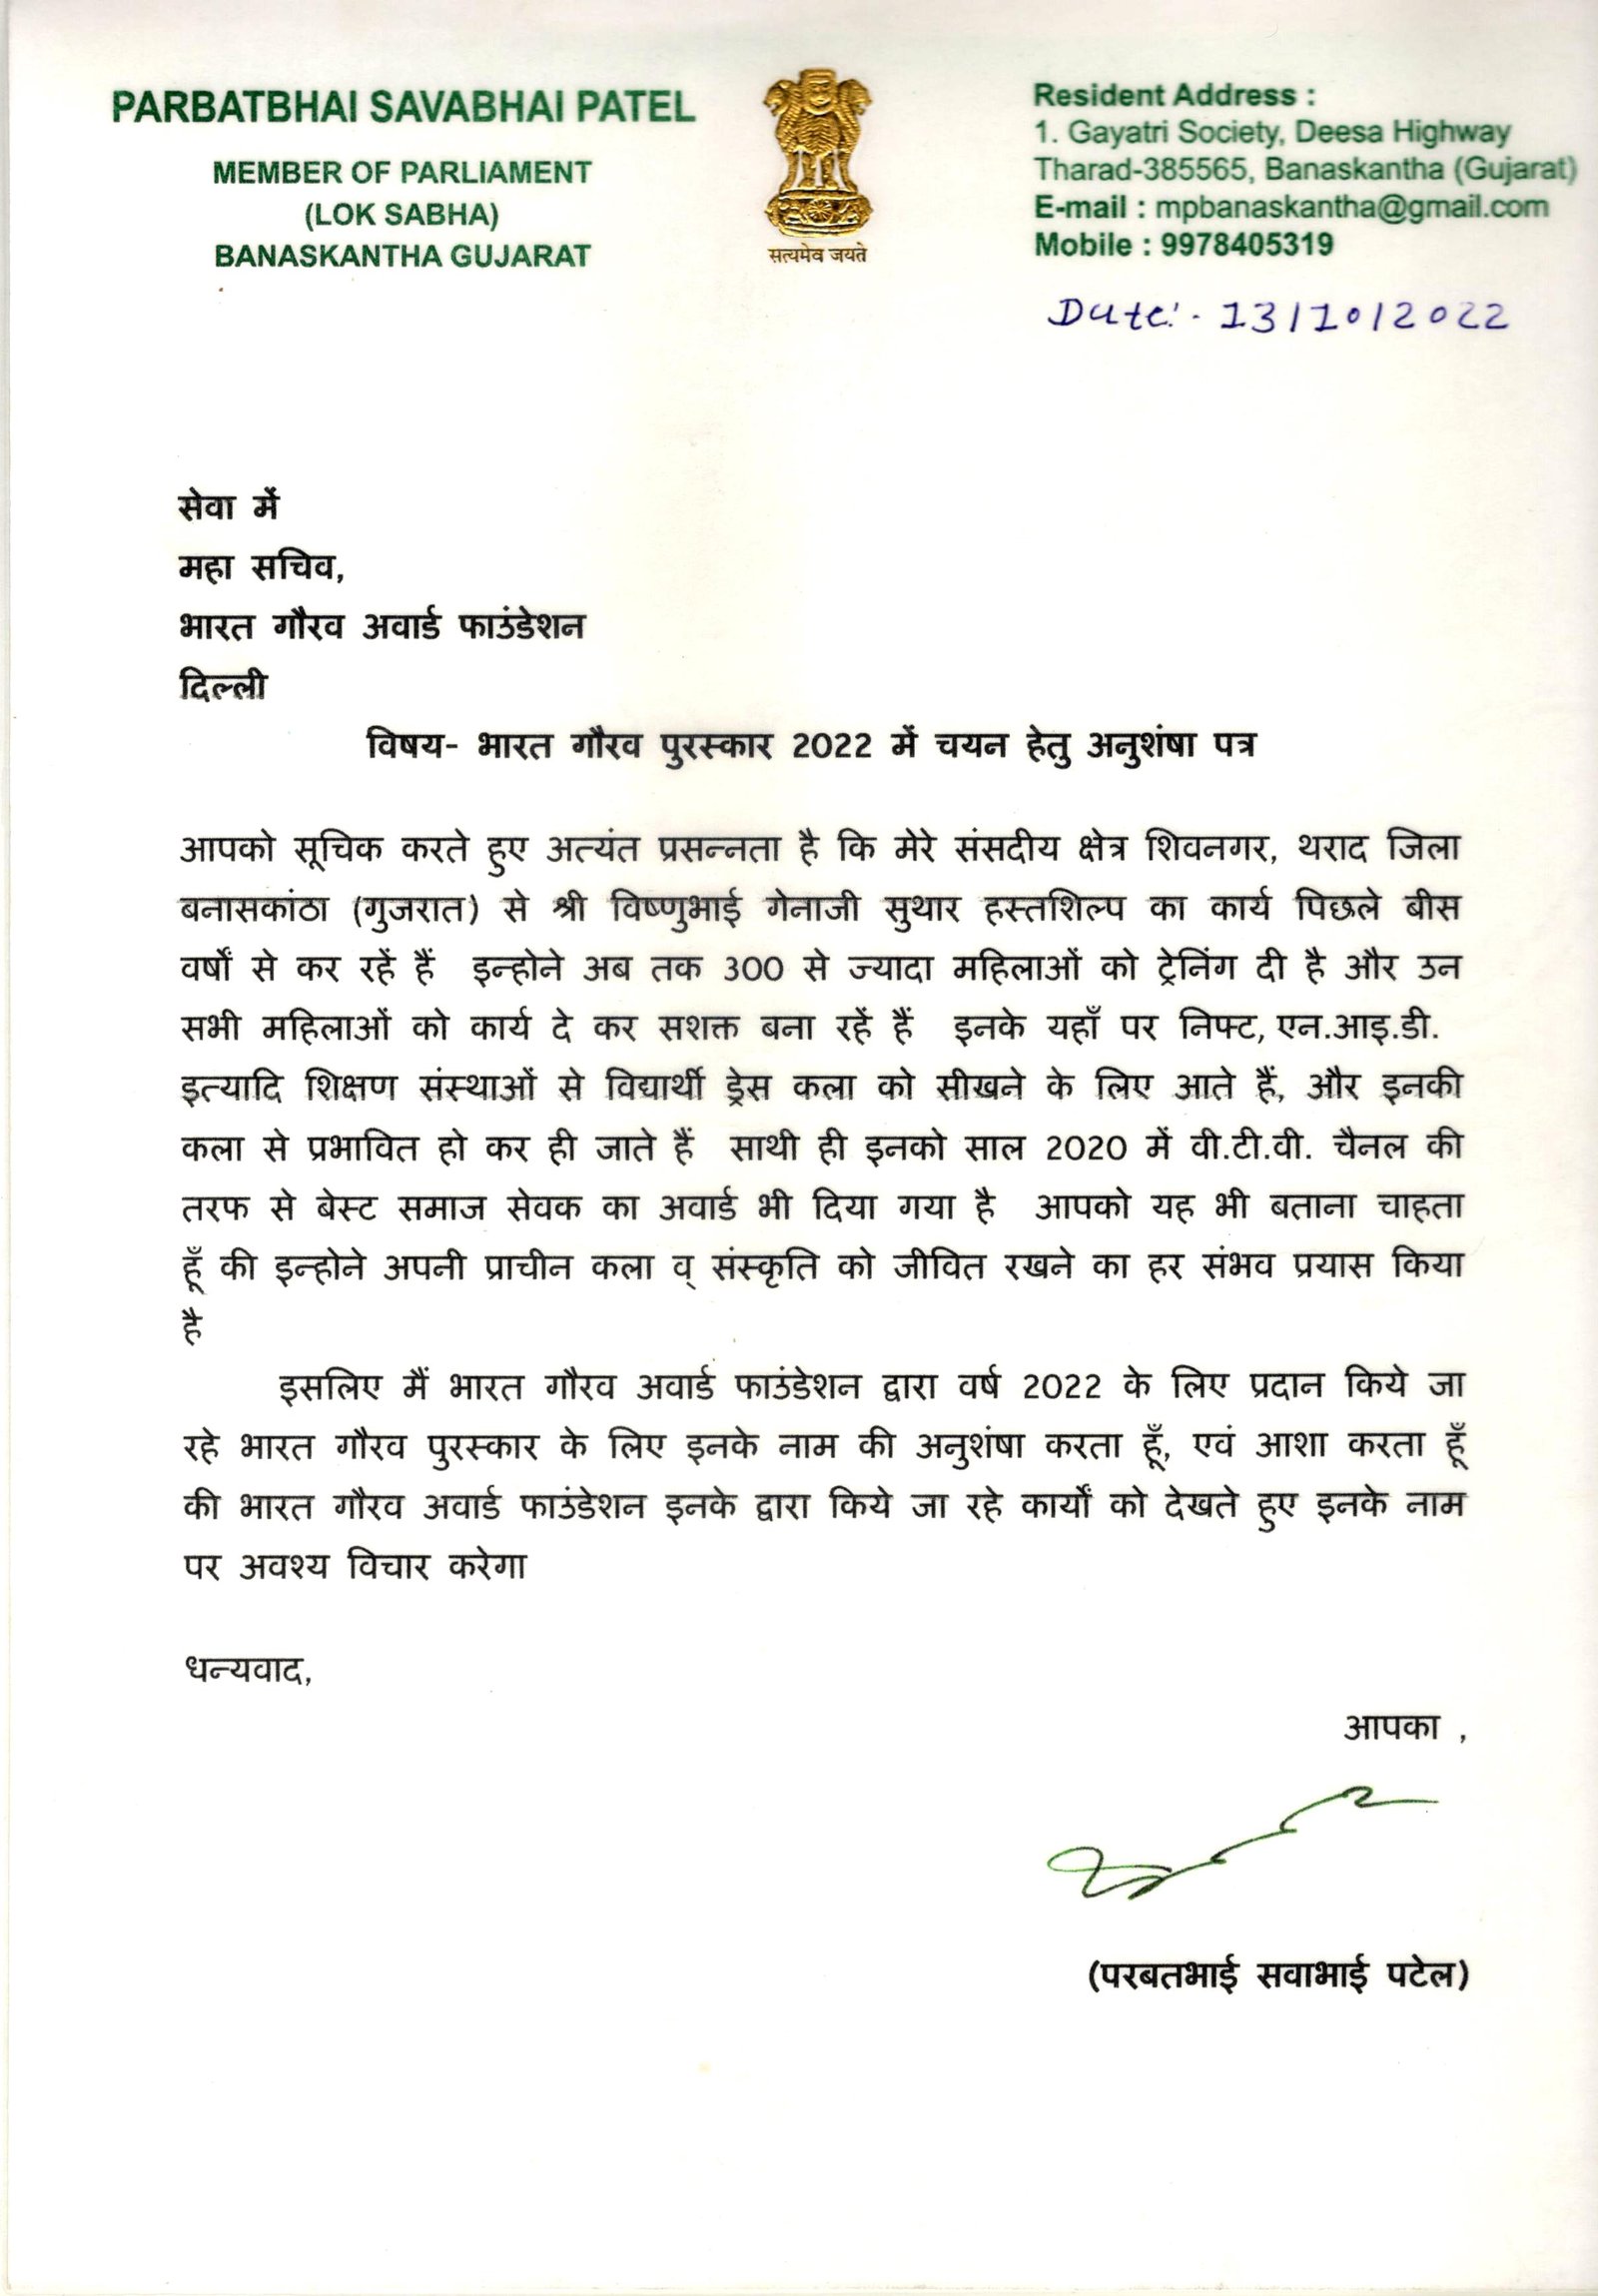 PARBATBHAI SAVABHAI PATEL
MEMBER OF PARLIAMENT
(LOK SABHA)
BANASKANTHA GUJARAT
सत्यमेव जयते
Resident Address :
1. Gayatri Society, Deesa Highway
Tharad-385565, Banaskantha (Gujarat)
E-mail : mpbanaskantha@gmail.com
Mobile : 9978405319
Date:- 13/10/2022
सेवा में
महा सचिव,
भारत गौरव अवार्ड फाउंडेशन
दिल्ली
विषय- भारत गौरव पुरस्कार 2022 में चयन हेतु अनुशंषा पत्र
आपको सूचिक करते हुए अत्यंत प्रसन्नता है कि मेरे संसदीय क्षेत्र शिवनगर, थराद जिला
बनासकांठा (गुजरात) से श्री विष्णुभाई गेनाजी सुथार हस्तशिल्प का कार्य पिछले बीस
वर्षों से कर रहें हैं इन्होने अब तक 300 से ज्यादा महिलाओं को ट्रेनिंग दी है और उन
सभी महिलाओं को कार्य दे कर सशक्त बना रहें हैं इनके यहाँ पर निफ्ट, एन.आइ.डी.
इत्यादि शिक्षण संस्थाओं से विद्यार्थी ड्रेस कला को सीखने के लिए आते हैं, और इनकी
कला से प्रभावित हो कर ही जाते हैं साथी ही इनको साल 2020 में वी.टी.वी. चैनल की
तरफ से बेस्ट समाज सेवक का अवार्ड भी दिया गया है आपको यह भी बताना चाहता
हूँ की इन्होने अपनी प्राचीन कला व् संस्कृति को जीवित रखने का हर संभव प्रयास किया
है
इसलिए मैं भारत गौरव अवार्ड फाउंडेशन द्वारा वर्ष 2022 के लिए प्रदान किये जा
रहे भारत गौरव पुरस्कार के लिए इनके नाम की अनुशंषा करता हूँ, एवं आशा करता हूँ
की भारत गौरव अवार्ड फाउंडेशन इनके द्वारा किये जा रहे कार्यों को देखते हुए इनके नाम
पर अवश्य विचार करेगा
धन्यवाद,
आपका ,
(परबतभाई सवाभाई पटेल)